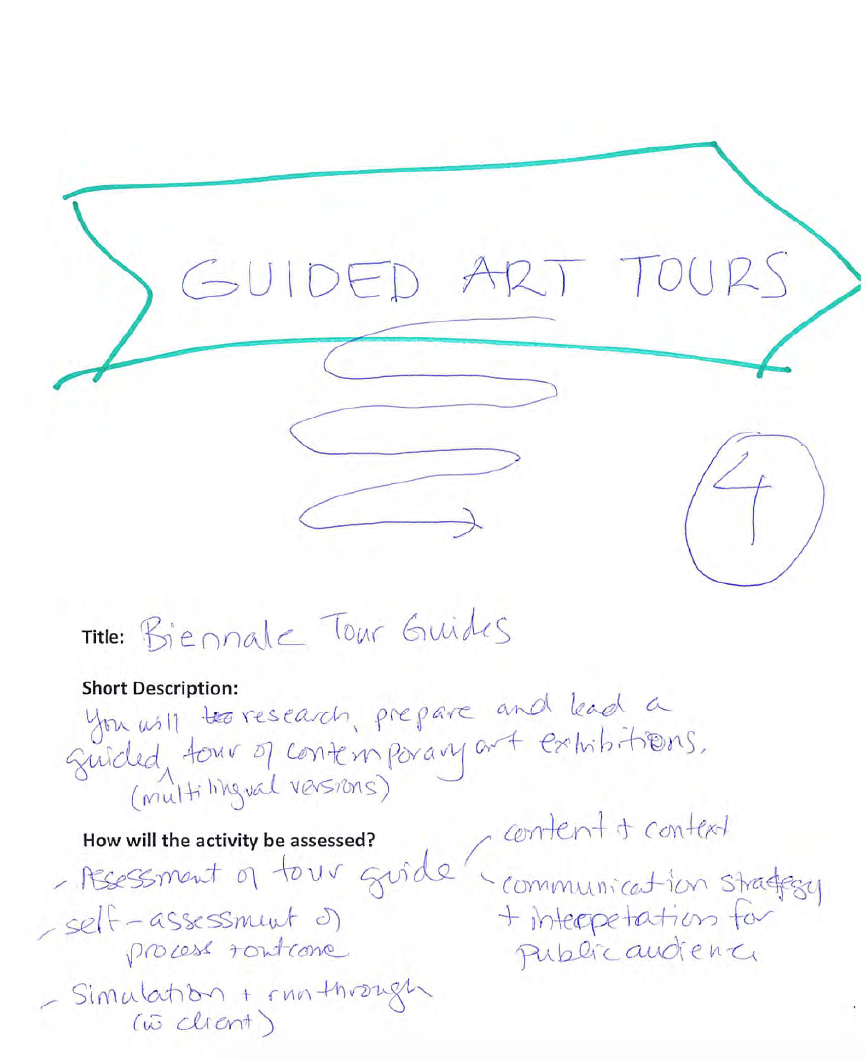 GUIDED ART TOURS
4
Title: Biennale Tour Guides
Short Description:
You will research, prepare and lead a
guided tour of contemporary art exhibitions.
(multilingual versions)
How will the activity be assessed?
- Assessment of tour guide
- content + context
- communication strategy
+ interpetation for
public audience
- self-assessment of
process + outcome
- Simulation + run through
(w client)